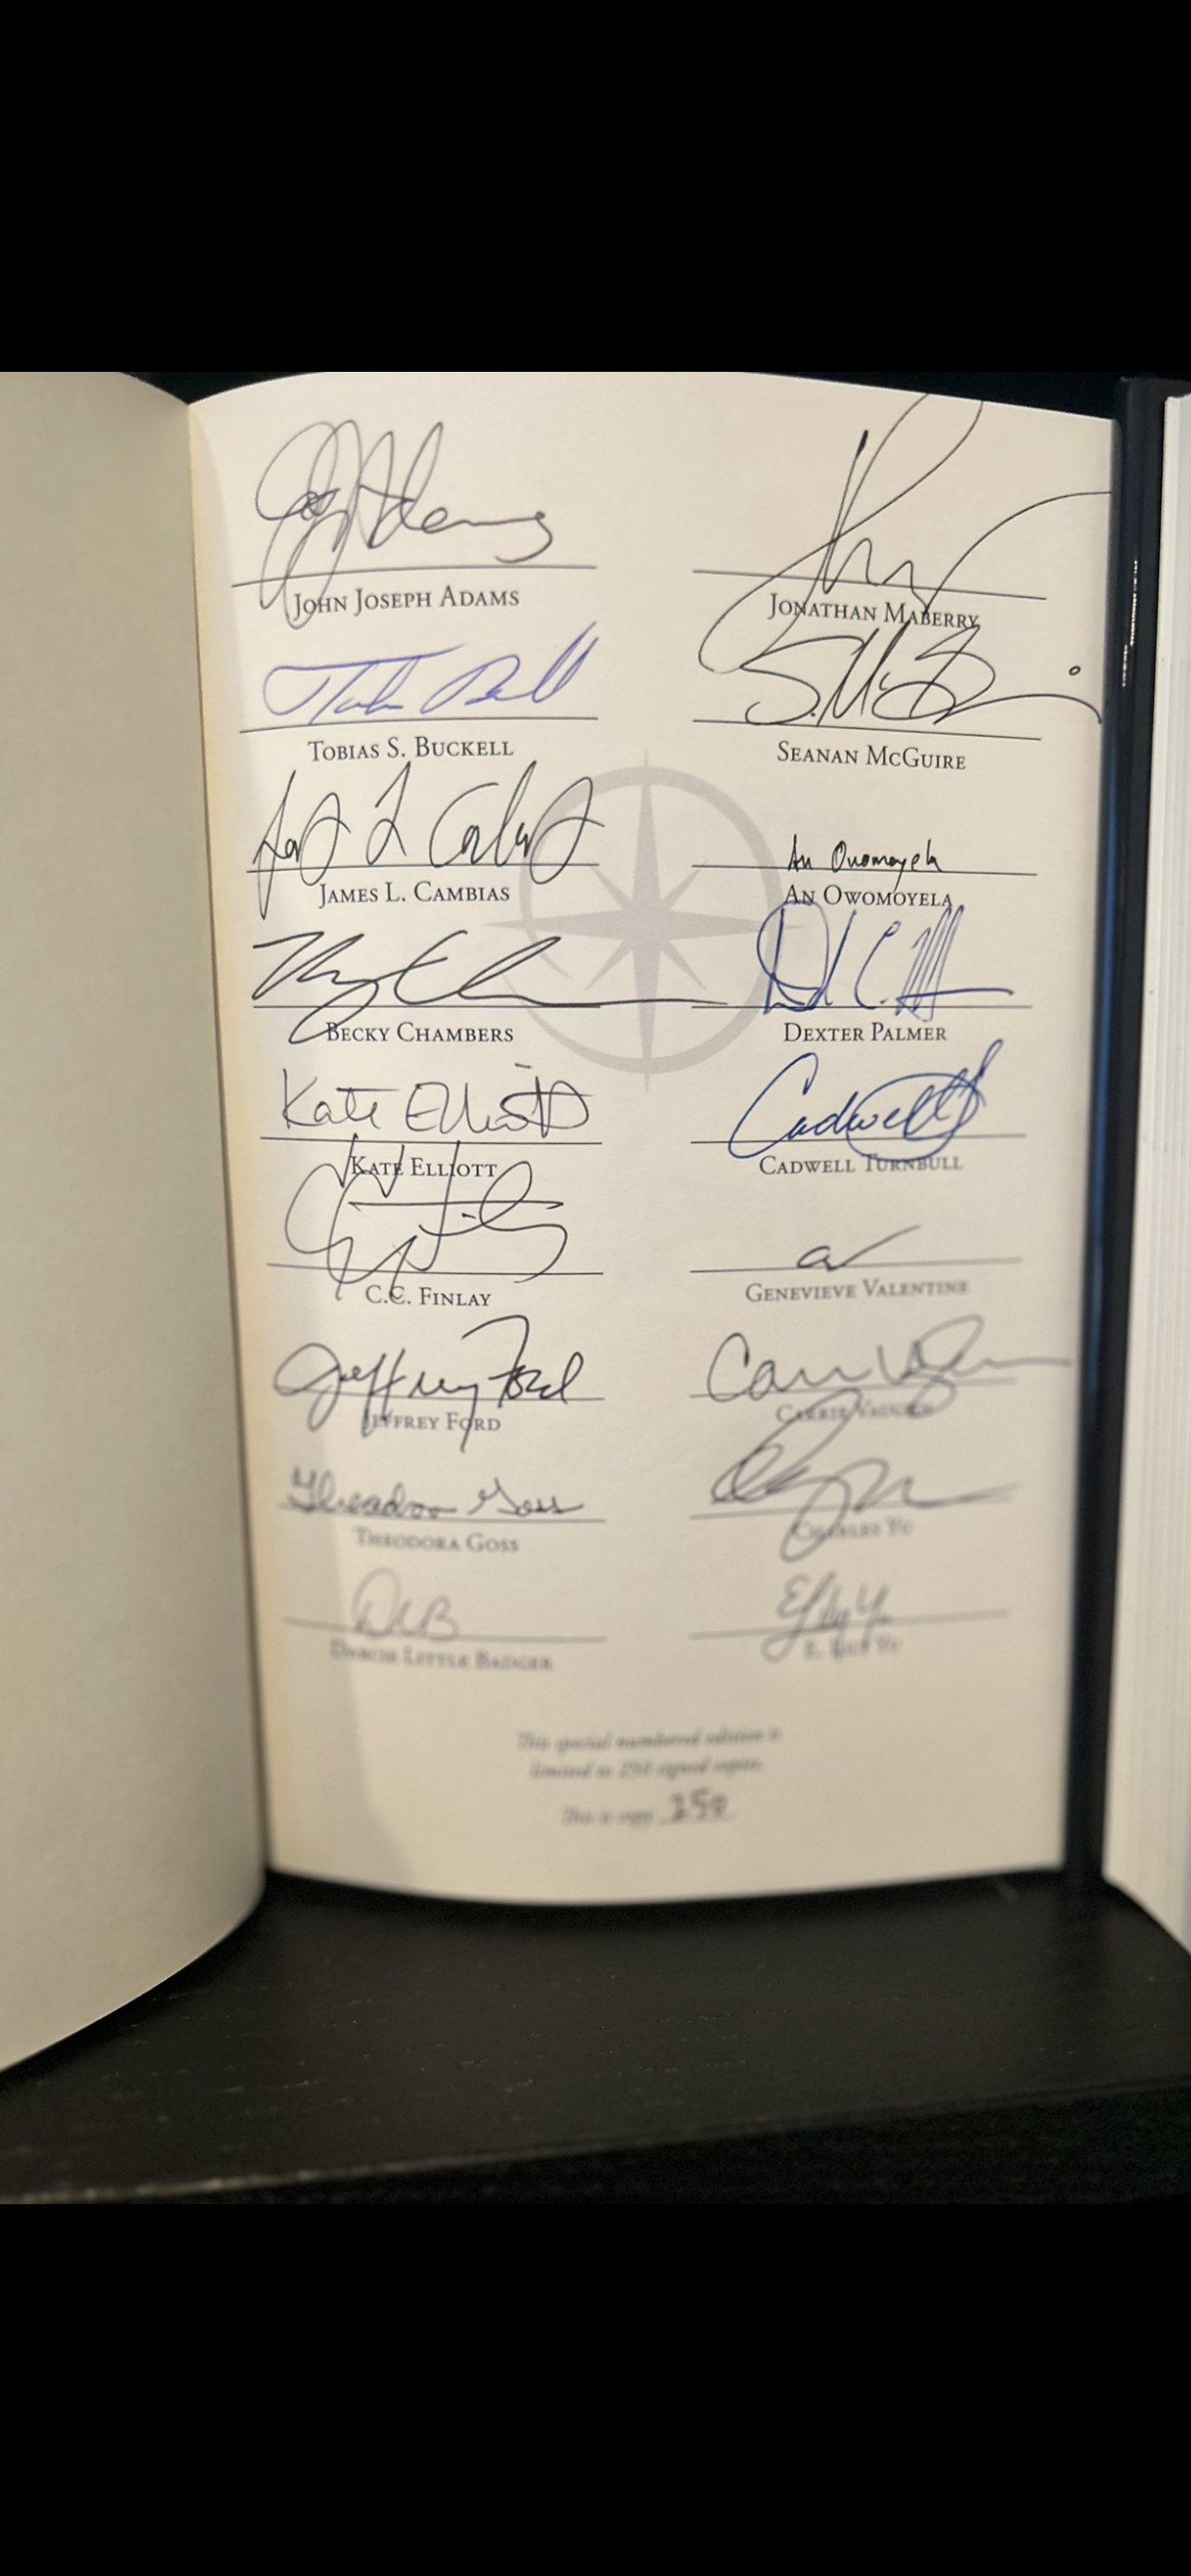 JJ Adams
JOHN JOSEPH ADAMS
JONATHAN MABERRY
TOBIAS S. BUCKELL
S. McG
SEANAN MCGUIRE
JAMES L. CAMBIAS
An Owomoyela
AN OWOMOYELA
BECKY CHAMBERS
DEXTER PALMER
Kate Elliott
KATE ELLIOTT
Cadwell
CADWELL TURNBULL
C.C. FINLAY
GENEVIEVE VALENTINE
Jeffrey Ford
JEFFREY FORD
CARRIE VAUGHN
Theodora Goss
THEODORA GOSS
CHARLES YU
DLB
DARCIE LITTLE BADGER
E. LILY YU
This special numbered edition is
limited to 250 signed copies.
This is copy 250